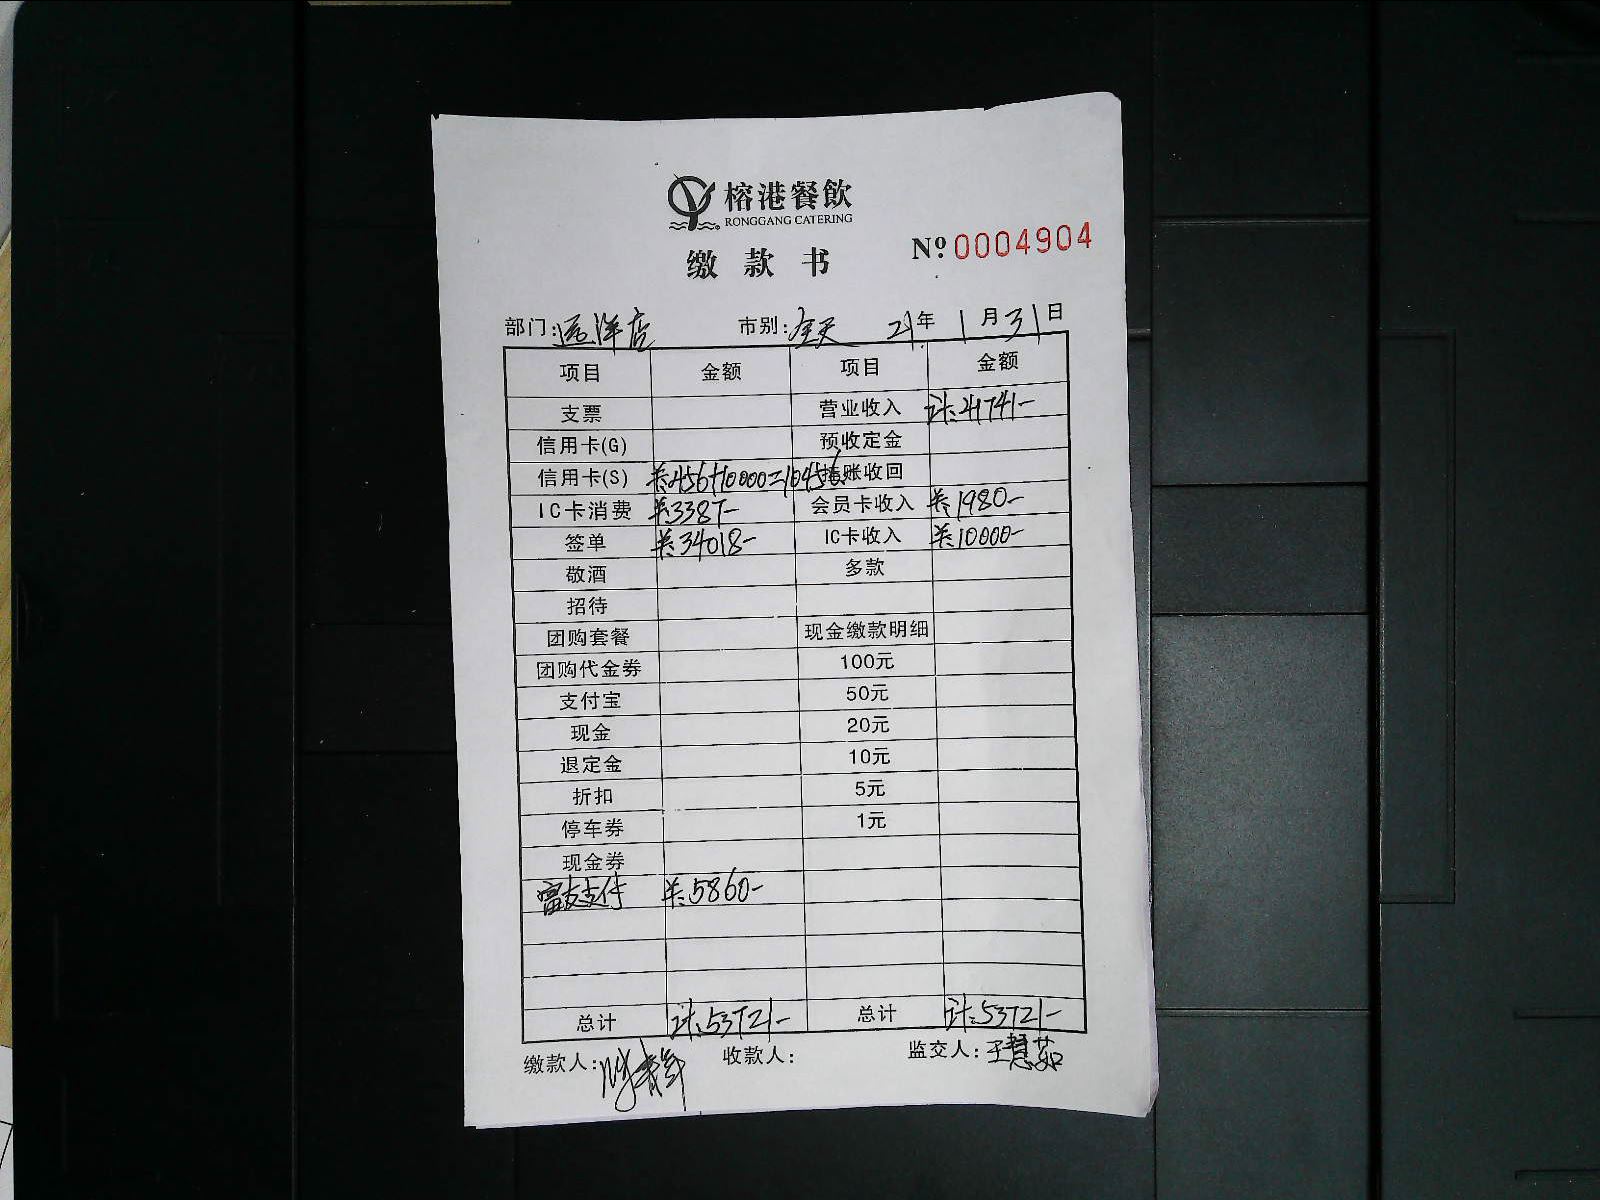 榕港餐飲
RONGGANG CATERING
缴款书
Nº.0004904
部门:远洋店 市别:全天 21年1月31日
项目 金额 项目 金额
支票 营业收入 计:41741-
信用卡(G) 预收定金
信用卡(S) 羊:456+10000=10456 账收回
IC卡消费 羊:3387- 会员卡收入 羊:1980-
签单 羊:34018- IC卡收入 羊:10000-
敬酒 多款
招待
团购套餐 现金缴款明细
团购代金券 100元
支付宝 50元
现金 20元
退定金 10元
折扣 5元
停车券 1元
现金券
富友支付 羊:5860-
总计 计:53721- 总计 计:53721-
缴款人: 收款人: 监交人:王慧茹